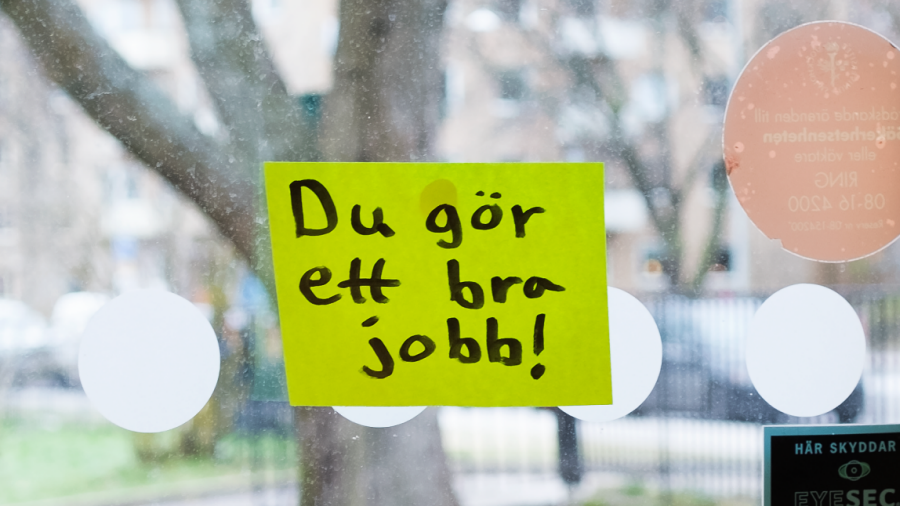 Du gör
ett bra
jobb!
ädskande ärenden till
Säkerhetsenheten
eller väktare
RING
08-16 4200
HÄR SKYDDAR
EYESEC